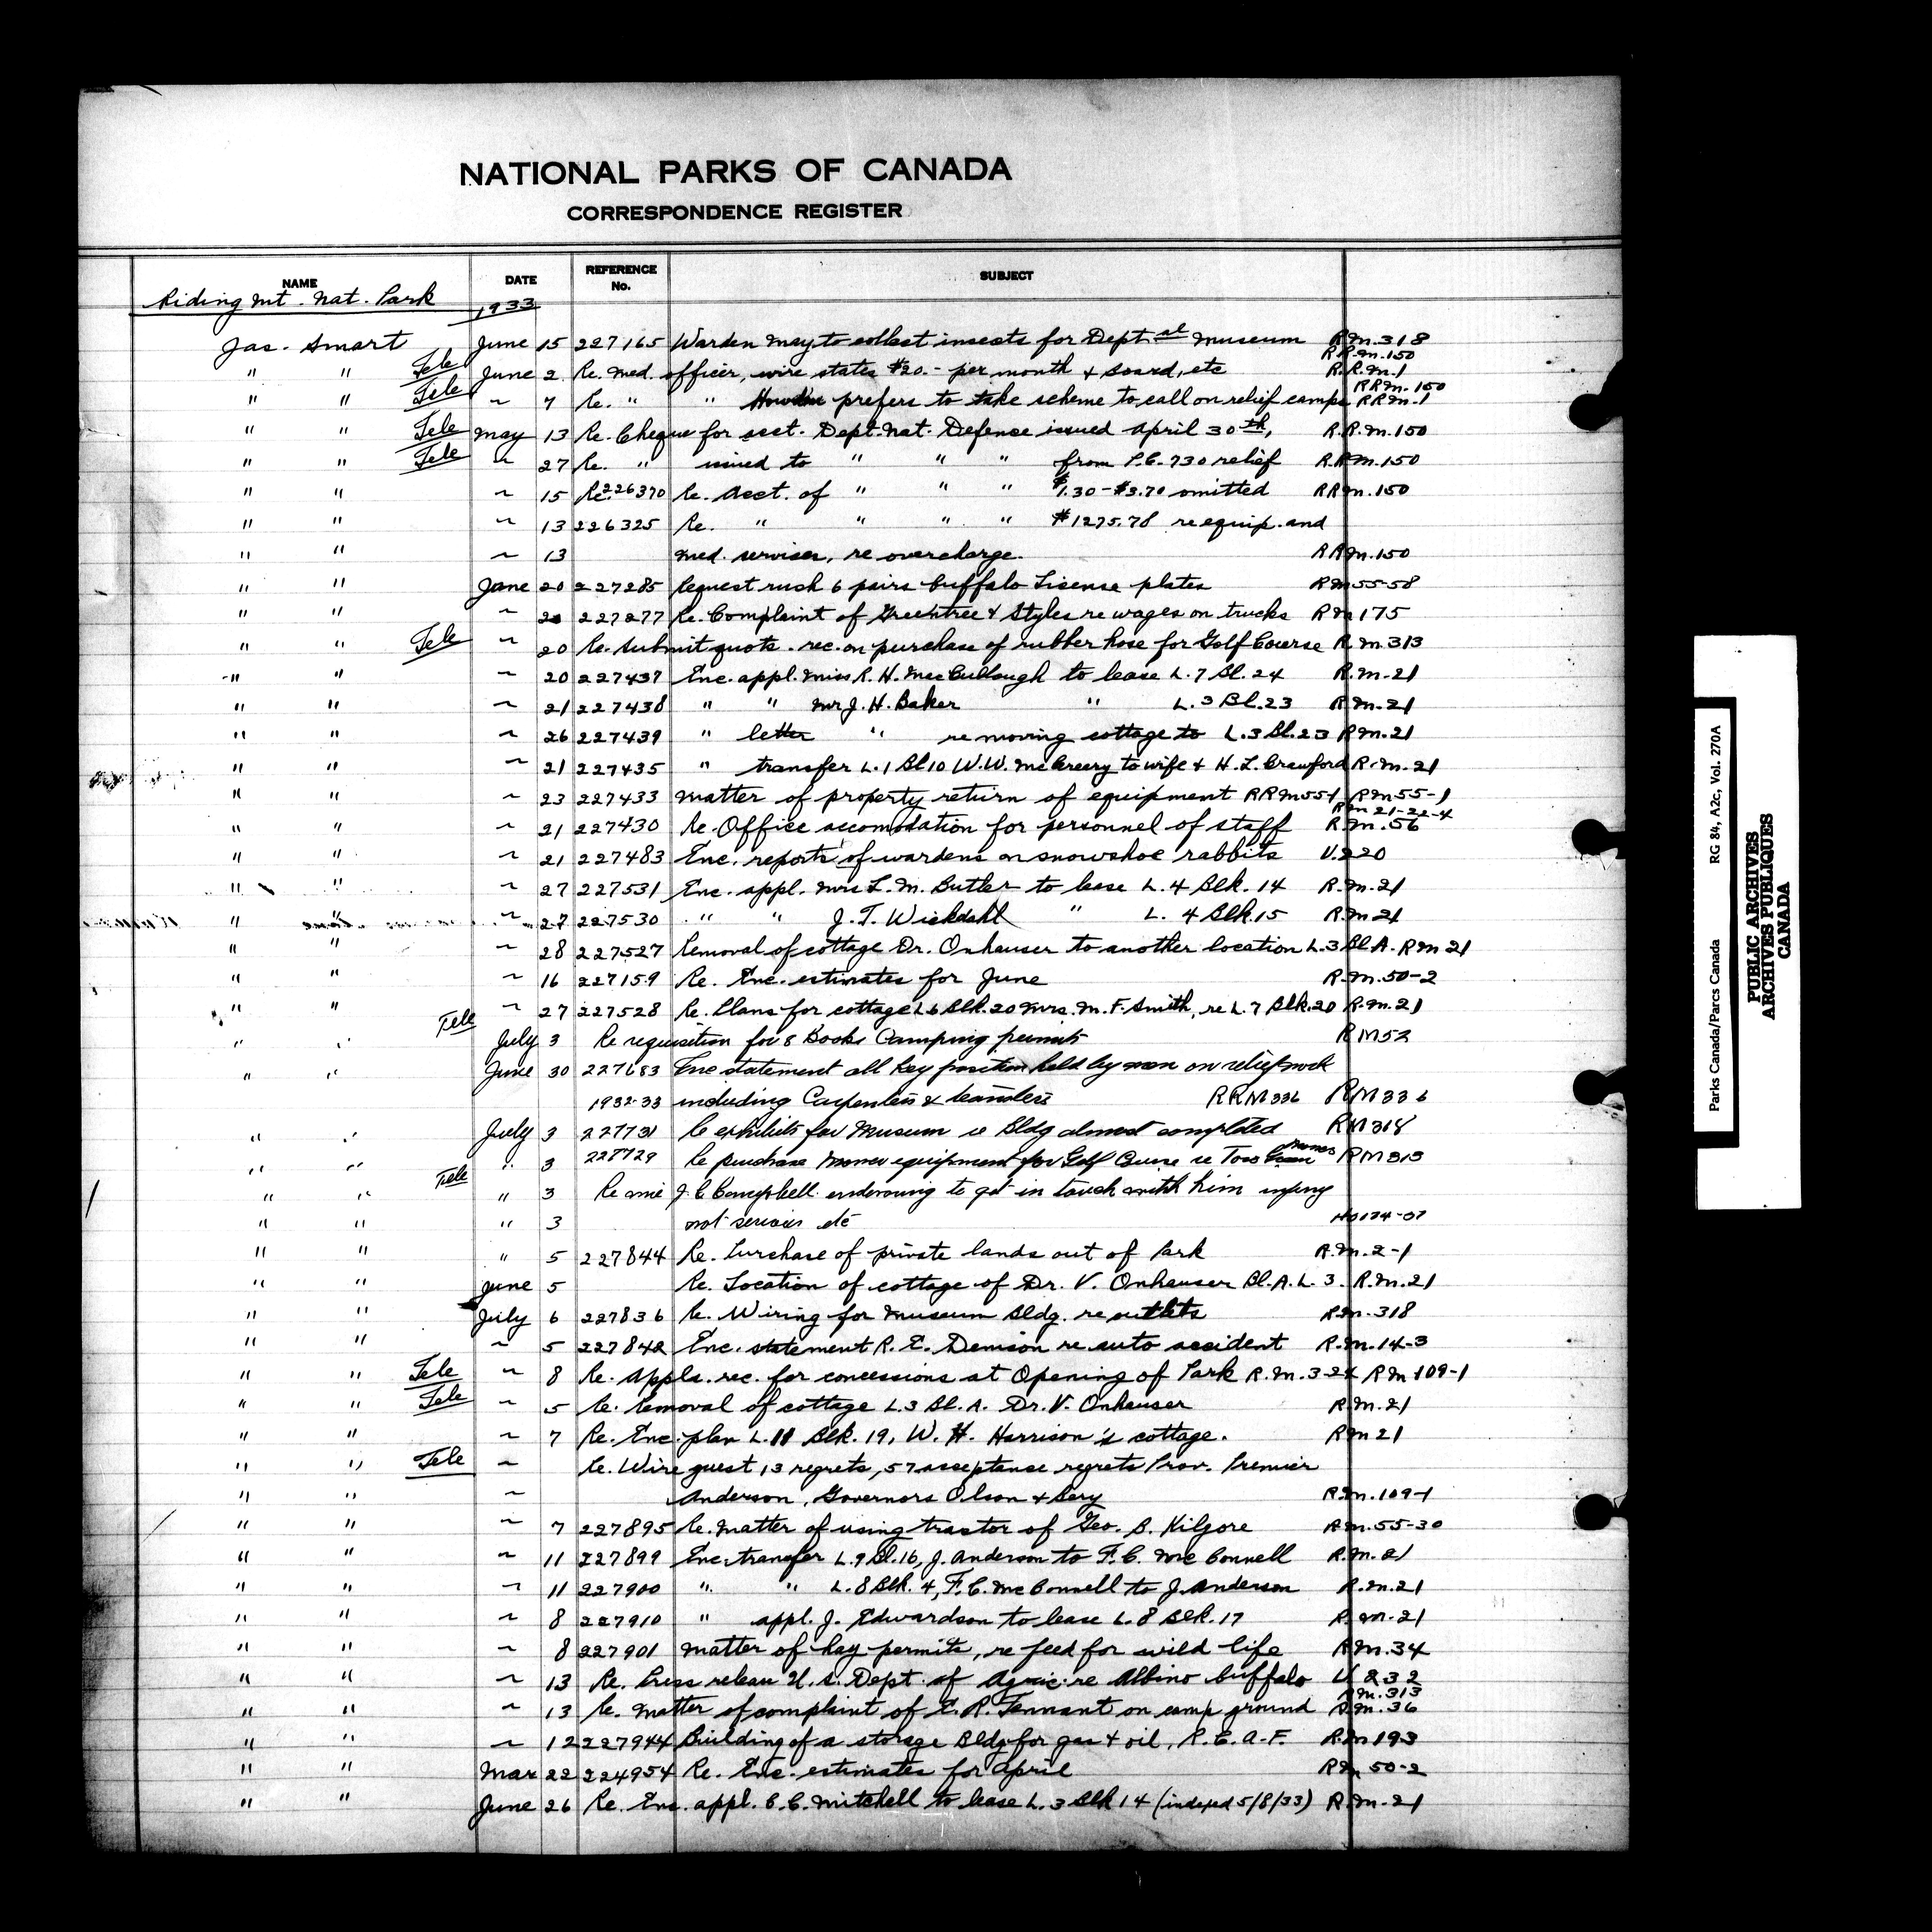 NATIONAL PARKS OF CANADA
CORRESPONDENCE REGISTER
NAME DATE REFERENCE No. SUBJECT
Riding Mt. Nat. Park 1933
Jas. Smart June 15 227165 Warden May to collect insects for Dept al Museum R.M.318
R.R.M.150
" " Tele June 2 Re. Med. officer, wire states $20.- per month & board, etc R.R.M.1
R.R.M.150
" " Tele ~ 7 Re. " " prefers to take scheme to call on relief camps R.R.M.1
" " Tele May 13 Re. Cheque for acct. Dept. Nat. Defense issued April 30th, R.R.M.150
" " Tele ~ 27 Re. " issued to " " " from P.C. 730 relief R.R.M.150
" " ~ 15 Re. 226370 Re. Acct. of " " " $1.30-$3.70 omitted R.R.M.150
" " ~ 13 226325 Re. " " " " $1275.78 re equip. and
" " ~ 13 med. services, re overcharge. R.R.M.150
" " June 20 227285 Request rush 6 pairs buffalo License plates R.M.55-58
" " ~ 20 227277 Re. Complaint of Greentree & Styles re wages on trucks R.M.175
" " Tele ~ 20 Re. Submit quots. rec. on purchase of rubber hose for Golf Course R.M.313
" " ~ 20 227437 Enc. appl. Miss R. H. MacCullough to lease L.7 Bl.24 R.M.21
" " ~ 21 227438 " " Mr J. H. Baker " L.3 Bl.23 R.M.21
" " ~ 26 227439 " letter " re moving cottage to L.3 Bl.23 R.M.21
" " ~ 21 227435 " transfer L.1 Bl 10 W.W. McCreery to wife & H. L. Crawford R.M.21
" " ~ 23 227433 Matter of property return of equipment R.R.M.55-1 R.M.55-1
R.M.21-22-4
" " ~ 21 227430 Re. Office accomodation for personnel of staff R.M.56
" " ~ 21 227483 Enc. reports of wardens on snowshoe rabbits U.220
" " ~ 27 227531 Enc. appl. Mrs L. M. Butler to lease L.4 Blk. 14 R.M.21
" " ~ 27 227530 " " J. T. Wickdahl " L. 4 Blk.15 R.M.21
" " ~ 28 227527 Removal of cottage Dr. Onhauser to another location L.3 Bl.A. R.M.21
" " ~ 16 227159 Re. Enc. estimates for June R.M.50-2
" " ~ 27 227528 Re. Plans for cottage L6 Blk.20 Mrs. M. F. Smith, re L.7 Blk.20 R.M.21
" " Tele July 3 Re requisition for 8 Books Camping permits RM52
" " June 30 227683 Enc statement all key position held by men on relief work
1932-33 including Carpenters & teamsters RRM336 RM336
" " July 3 227731 Re exhibits for Museum re Bldg almost completed RM318
" " " 3 227729 Re purchase Mower equipment for Golf Course re Toro mowers RM313
" " Tele " 3 Re wire J. C. Campbell endevouring to get in touch with him injury
" " " 3 not serious etc
" " " 5 227844 Re. Purchase of private lands out of Park R.M.2-1
" " June 5 Re. Location of cottage of Dr. V. Onhauser Bl.A. L.3. R.M.21
" " July 6 227836 Re. Wiring for Museum Bldg. re outlets R.M.318
" " ~ 5 227842 Enc. statement R. E. Denison re auto accident R.M.14-3
" " Tele ~ 8 Re. Appls. rec. for concessions at Opening of Park R.M.324 R.M.109-1
" " Tele ~ 5 Re. Removal of cottage L.3 Bl.A. Dr. V. Onhauser R.M.21
" " ~ 7 Re. Enc. plan L.11 Blk. 19, W. H. Harrison's cottage. R.M.21
" " Tele ~ Re. Wire guest 13 regrets, 57 acceptance regrets Prov. Premier
" " ~ Anderson, Governors Olson & Berg R.M.109-1
" " ~ 7 227895 Re. Matter of using tractor of Geo. B. Kilgore R.M.55-30
" " ~ 11 227899 Enc. transfer L.9 Bl.16, J. Anderson to F. C. McConnell R.M.21
" " ~ 11 227900 " " L.8 Blk. 4, F. C. McConnell to J. Anderson R.M.21
" " ~ 8 227910 " appl. J. Edwardson to lease L.8 Blk.17 R.M.21
" " ~ 8 227901 Matter of hay permits, re feed for wild life R.M.34
" " ~ 13 Re. Press release U.S. Dept. of Agric. re Albino buffalo U 232
R.M.313
" " ~ 13 Re. Matter of complaint of E. R. Tennant on camp ground R.M.36
" " ~ 12 227944 Building of a storage Bldg for gas & oil, R.C.A.F. R.M.193
" " Mar 22 224954 Re. Enc. estimates for April R.M.50-2
" " June 26 Re. Enc. appl. C.C. Mitchell to lease L.3 Blk 14 (indexed 5/8/33) R.M.21
Parks Canada/Parcs Canada RG 84, A2c, Vol. 270A
PUBLIC ARCHIVES
ARCHIVES PUBLIQUES
CANADA